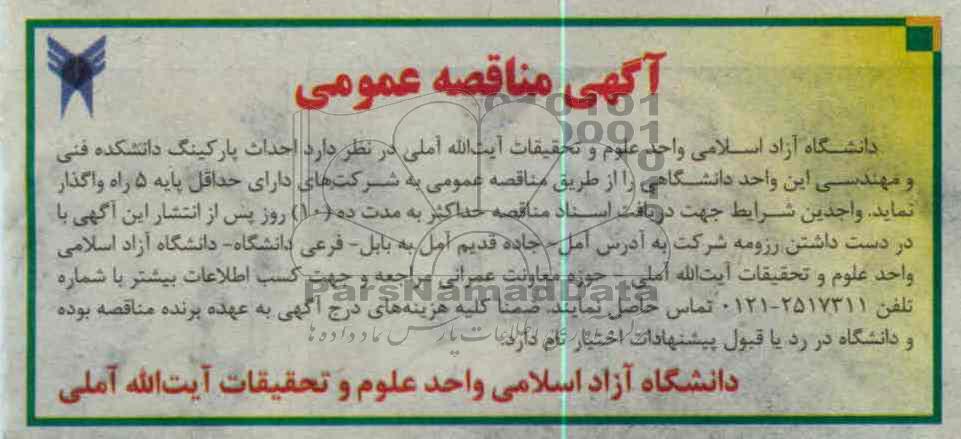 آگهی مناقصه عمومی
دانشگاه آزاد اسلامی واحد علوم و تحقیقات آیت‌الله آملی در نظر دارد احداث پارکینگ دانشکده فنی
و مهندسی این واحد دانشگاهی را از طریق مناقصه عمومی به شرکت‌های دارای حداقل پایه ۵ راه واگذار
نماید. واجدین شرایط جهت دریافت اسناد مناقصه حداکثر به مدت ده (۱۰) روز پس از انتشار این آگهی با
در دست داشتن رزومه شرکت به آدرس آمل- جاده قدیم آمل به بابل- فرعی دانشگاه- دانشگاه آزاد اسلامی
واحد علوم و تحقیقات آیت‌الله آملی- حوزه معاونت عمرانی مراجعه و جهت کسب اطلاعات بیشتر با شماره
ParsNamadData
تلفن ۲۵۱۷۳۱۱-۰۱۲۱ تماس حاصل نمایند. ضمنا کلیه هزینه‌های درج آگهی به عهده برنده مناقصه بوده
و دانشگاه در رد یا قبول پیشنهادات اختیار تام دارد.
دانشگاه آزاد اسلامی واحد علوم و تحقیقات آیت‌الله آملی